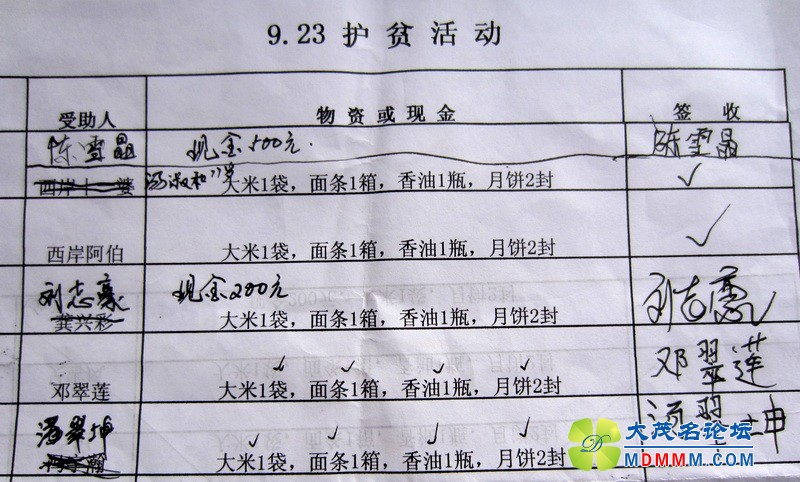 9.23护贫活动
受助人 物资或现金 签收
陈雪晶 现金500元. 陈雪晶
西岸十一婆 大米1袋，面条1箱，香油1瓶，月饼2封 ✓
西岸阿伯 大米1袋，面条1箱，香油1瓶，月饼2封 ✓
刘志豪 现金200元 刘志豪
龚兴彩 大米1袋，面条1箱，香油1瓶，月饼2封
✓ ✓ ✓ ✓
邓翠莲 大米1袋，面条1箱，香油1瓶，月饼2封 邓翠莲
汤翠坤 ✓ ✓ ✓ ✓ 汤翠坤
大米1袋，面条1箱，香油1瓶，月饼2封
大茂名论坛
MDMMM.COM